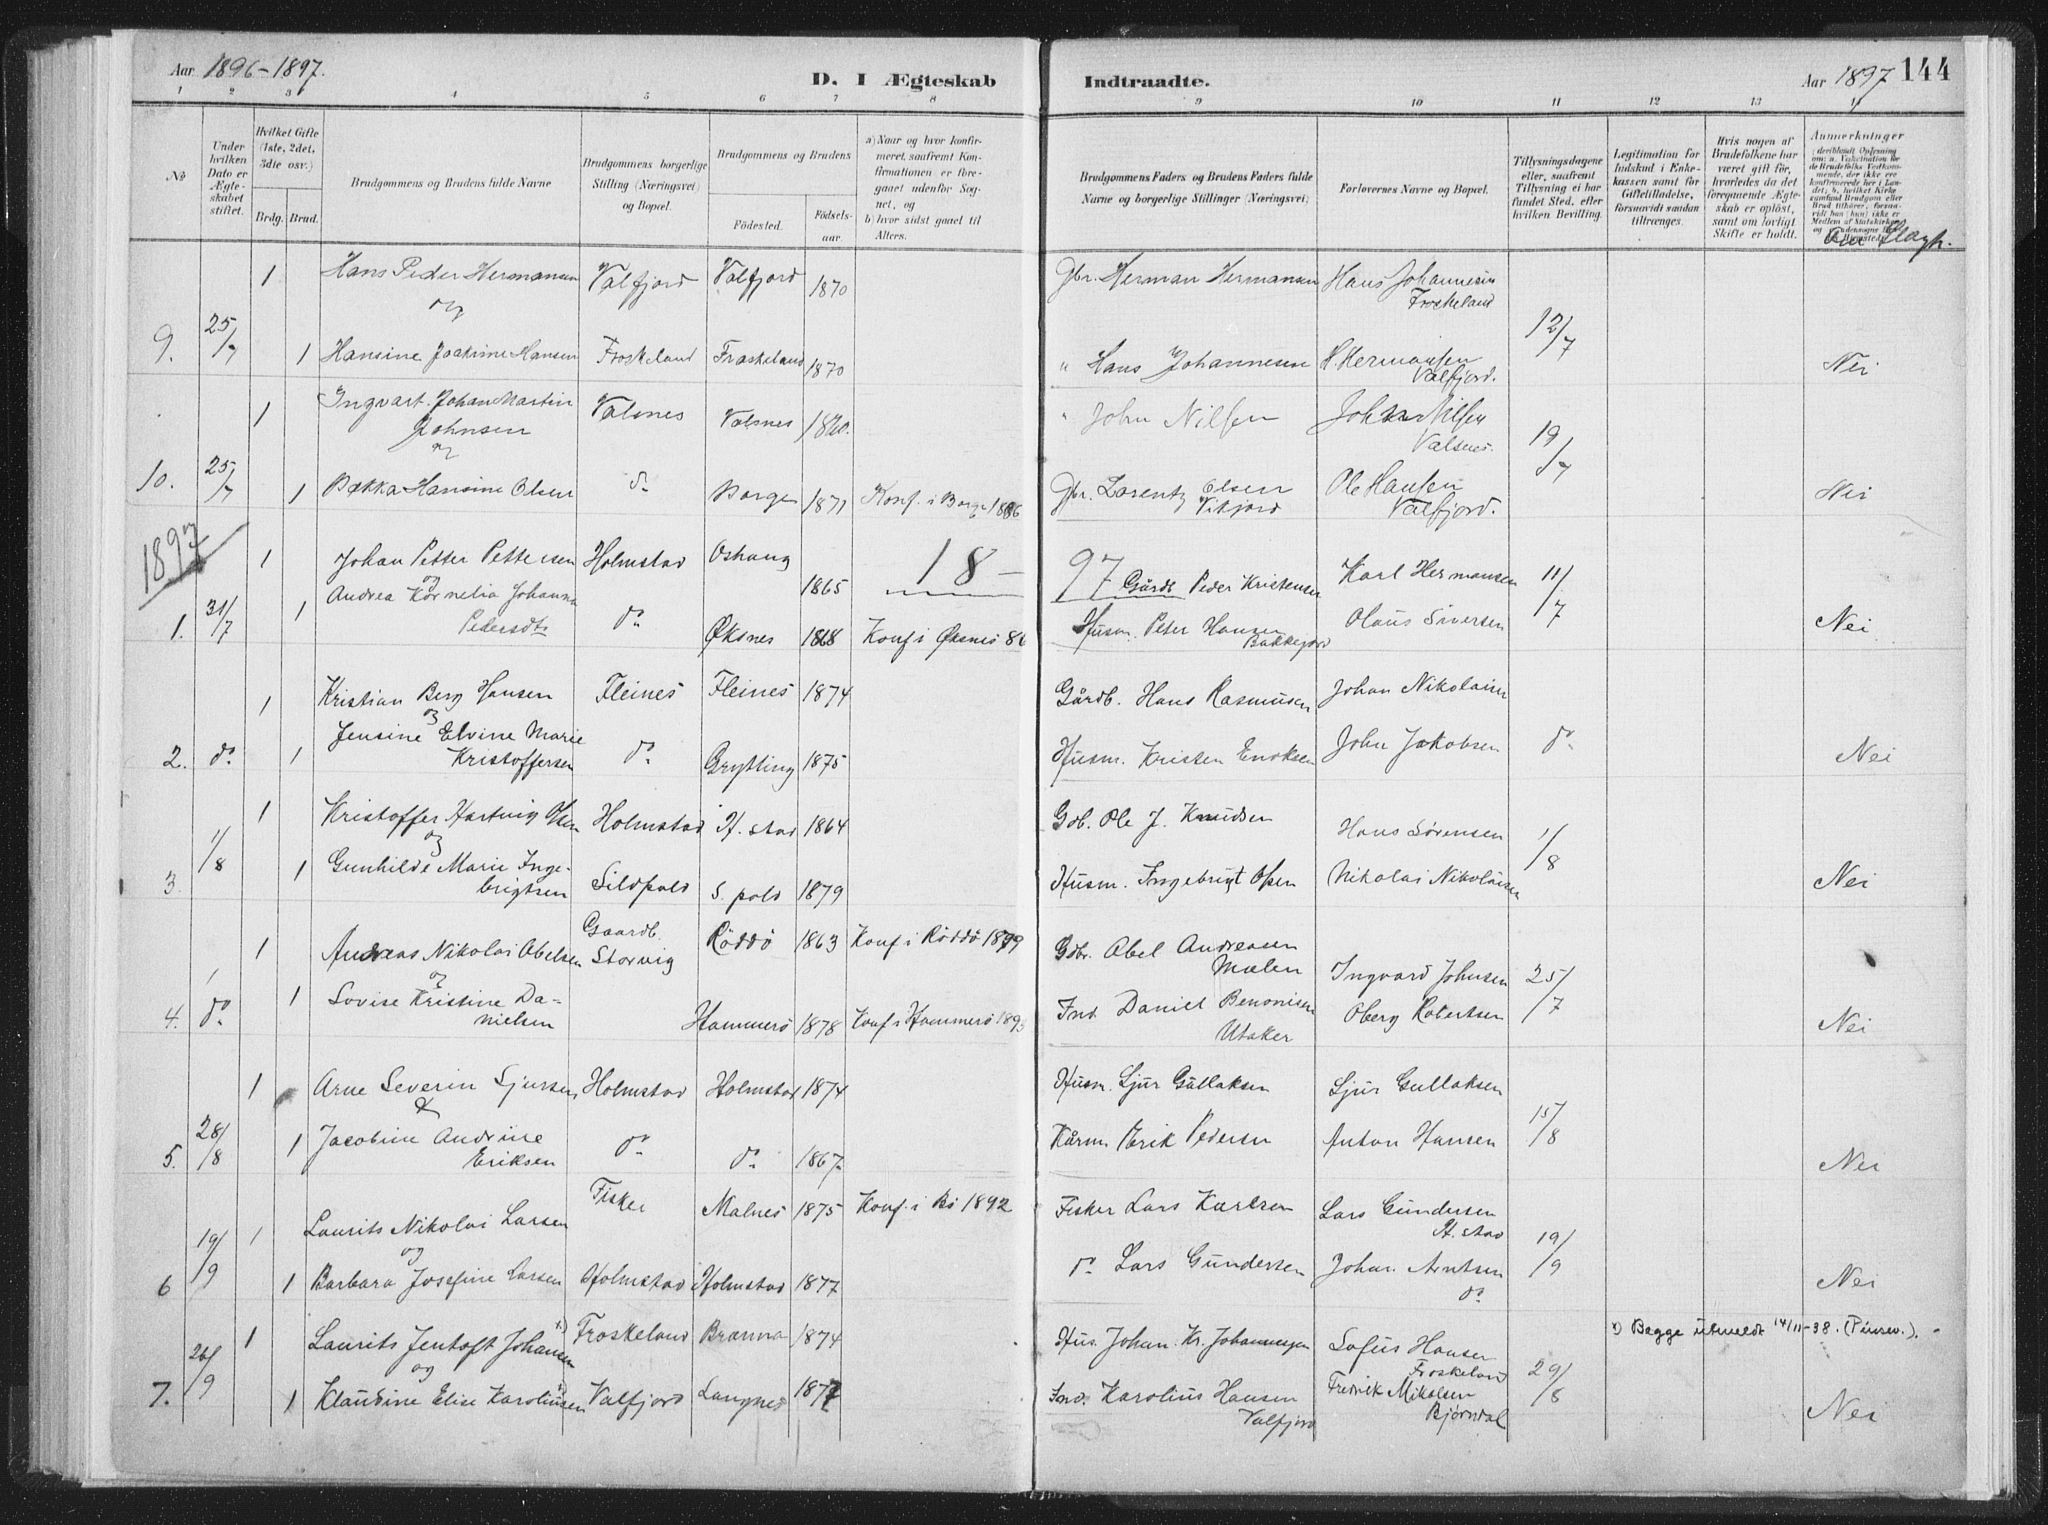 Aar 1896-1897.
D. I Ægteskab
Indtraadte.
Aar 1897
144
1 2 3 4 5 6 7 8 9 10 11 12 13 14
No
Under hvilken Dato er Ægteskabet stiftet.
Hvilket Gifte (1ste, 2det, 3die osv.)
Brdg. Brud.
Brudgommens og Brudens fulde Navne
Brudgommens borgerlige Stilling (Næringsvei) og Bopæl.
Brudgommens og Brudens
Fødested.
Fødselsaar.
a) Naar og hvor konfirmeret, saafremt Konfirmationen er foregaaet udenfor Sognet, og
b) hvor sidst gaaet til Alters.
Brudgommens Faders og Brudens Faders fulde Navne og borgerlige Stillinger (Næringsvei)
Forlovernes Navne og Bopæl.
Tillysningsdagene eller, saafremt Tillysning ei har fundet Sted, efter hvilken Bevilling.
Legitimation for Indskud i Enkekassen samt for Giftetilladelse, forsaavidt saadan tiltrænges.
Hvis nogen af Brudefolkene har været gift før, hvorledes da det foregaaende Ægteskab er opløst, samt om lovligt Skifte er holdt.
Anmerkninger
1 Hans Peder Hermansen Valfjord Valfjord 1870 Gbr. Herman Hermansen Hans Johannesen
og Froskeland
9. 25/7 1 Hansine Joakrine Hansen Froskeland Froskeland 1870 " Hans Johannesen H. Hermansen 12/7 Nei
Valfjord.
1 Ingvart Johan Martin Valsnes Valsnes 1860. " John Nilsen John Nilsen
Johnsen Valsnes.
og 19/7
10. 25/7 1 Bekka Hansine Olsen do Borge 1871 Konf. i Borge 1886 Gbr. Lorentz Olsen Ole Hansen Nei
Vikjord Valfjord.
1897 18-97
1 Johan Petter Pettersen Holmstad Oshaug 1865 Gårdb Peder Kristensen Karl Hermansen 11/7
og
1. 31/7 1 Andrea Kornelia Johanna do Øksnes 1868 Konf i Øksnes 86 Husm. Peter Hansen Olaus Siversen Nei
Pedersdtr Bakkejord
1 Kristian Berg Hansen Fleines Fleines 1874 Gårdb. Hans Rasmusen Johan Nikolaisen
og
2. do 1 Jensine Elvine Marie do Grytting 1875 Husm. Kristen Enoksen John Jakobsen do Nei
Kristoffersen
1 Kristoffer Hartvig Olsen Holmstad H.stad 1864 Gdb. Ole J. Knudsen Hans Sørensen 1/8
og
3. 1/8 1 Gunhilde Marie Inge- Sildpold S. pold 1879 Husm. Ingebrigt Olsen Nikolai Nikolaisen Nei
brigtsen
1 Andreas Nikolai Abelsen Gaardb. Storvig Röddö 1863 Konf i Röddö 1879 Gdbr. Abel Andreasen
og Mælen Ingvard Johnsen 25/7
4. do 1 Lovise Kristine Da- Hammerö 1878 Konf i Hammerö 1893 Ind Daniel Benonisen Oberg Robertsen Nei
nielsen Utaker
1 Arne Severin Sjursen Holmstad Holmstad 1874 Husm. Sjur Gullaksen Sjur Gullaksen
&
5. 28/8 1 Jacobine Andrine do do 1867. Kårm. Erik Pedersen Anton Hansen 15/8 Nei
Eriksen
1 Laurits Nikolai Larsen Fisker Malnes 1875 Konf. i Bö 1892 Fisker Lars Karlsen Lars Gundersen
og H.stad
6 19/9 1 Barbara Josefine Larsen Holmstad Holmstad 1877 do Lars Gundersen Johan Arntsen 19/9 Nei
do
1 Laurits Jentoft Johansen x) Froskeland Brænna 1874 Hus. Johan Kr. Johannesen Lofus Hansen x) Begge utmeldt 14/11-38. (Pinsev.).
og Froskeland
7. 26/9 1 Klaudine Elise Karoliusen x) Valfjord Langnes 1877 Ind. Karolius Hansen Fredrik Mikalsen 29/8 Nei
Valfjord Bjørndal